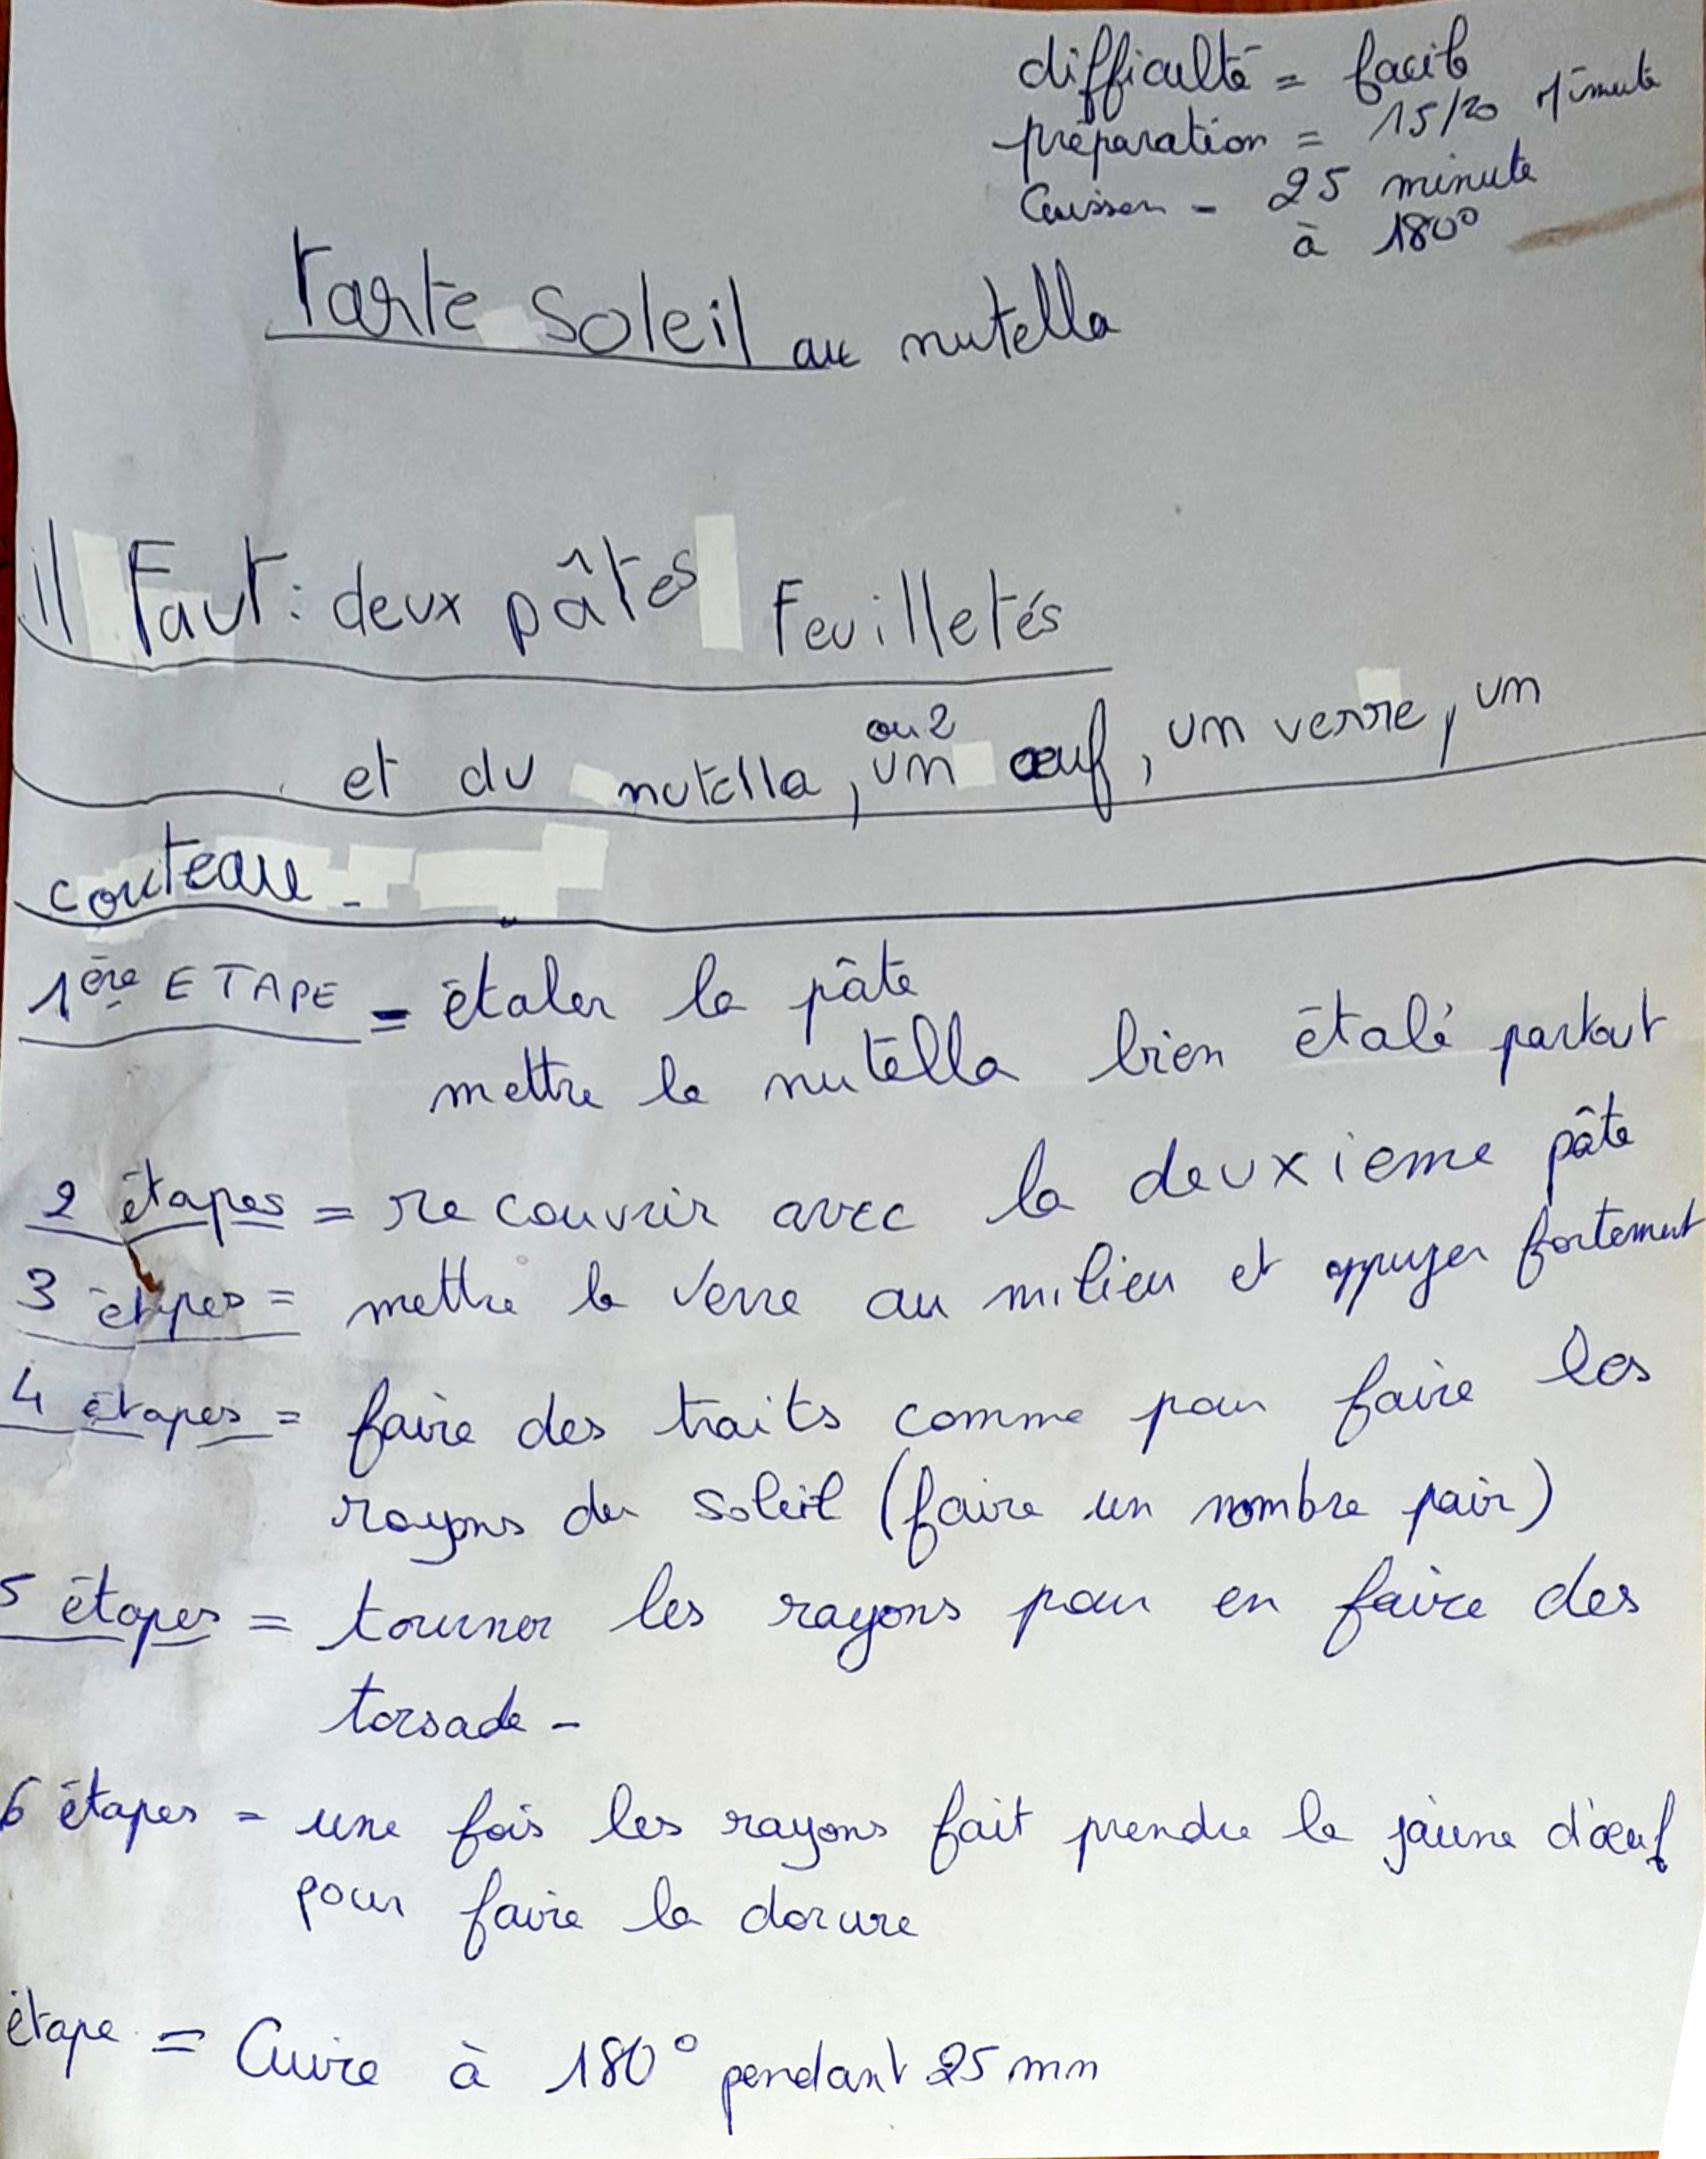 difficulté = facile
préparation = 15/20 minute
Cuisson - 25 minute
à 180°
Tarte soleil au nutella
il Faut : deux pâtes Feuilletés
ou 2
et du nutella, un œuf, un verre, un
couteau -
1ère ETAPE = étaler la pâte
mettre le nutella bien étalé partout
2 étapes = recouvrir avec la deuxieme pâte
3 étapes = mettre le verre au milieu et appuyer fortement
4 étapes = faire des traits comme pour faire les
rayons du soleil (faire un nombre pair)
5 étapes = tourner les rayons pour en faire des
torsade -
6 étapes = une fois les rayons fait prendre le jaune d'œuf
pour faire la dorure
étape = Cuire à 180° pendant 25 mn